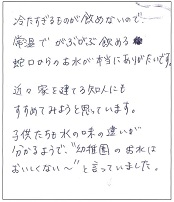 冷たすぎるものが飲めないので
常温でがぶがぶ飲める
蛇口からのお水が本当にありがたいです。
近々家を建てる知人にも
すすめてみようと思っています。
子供たちも水の味の違いが
分かるようで、"幼稚園のお水は
おいしくない～"と言っていました。